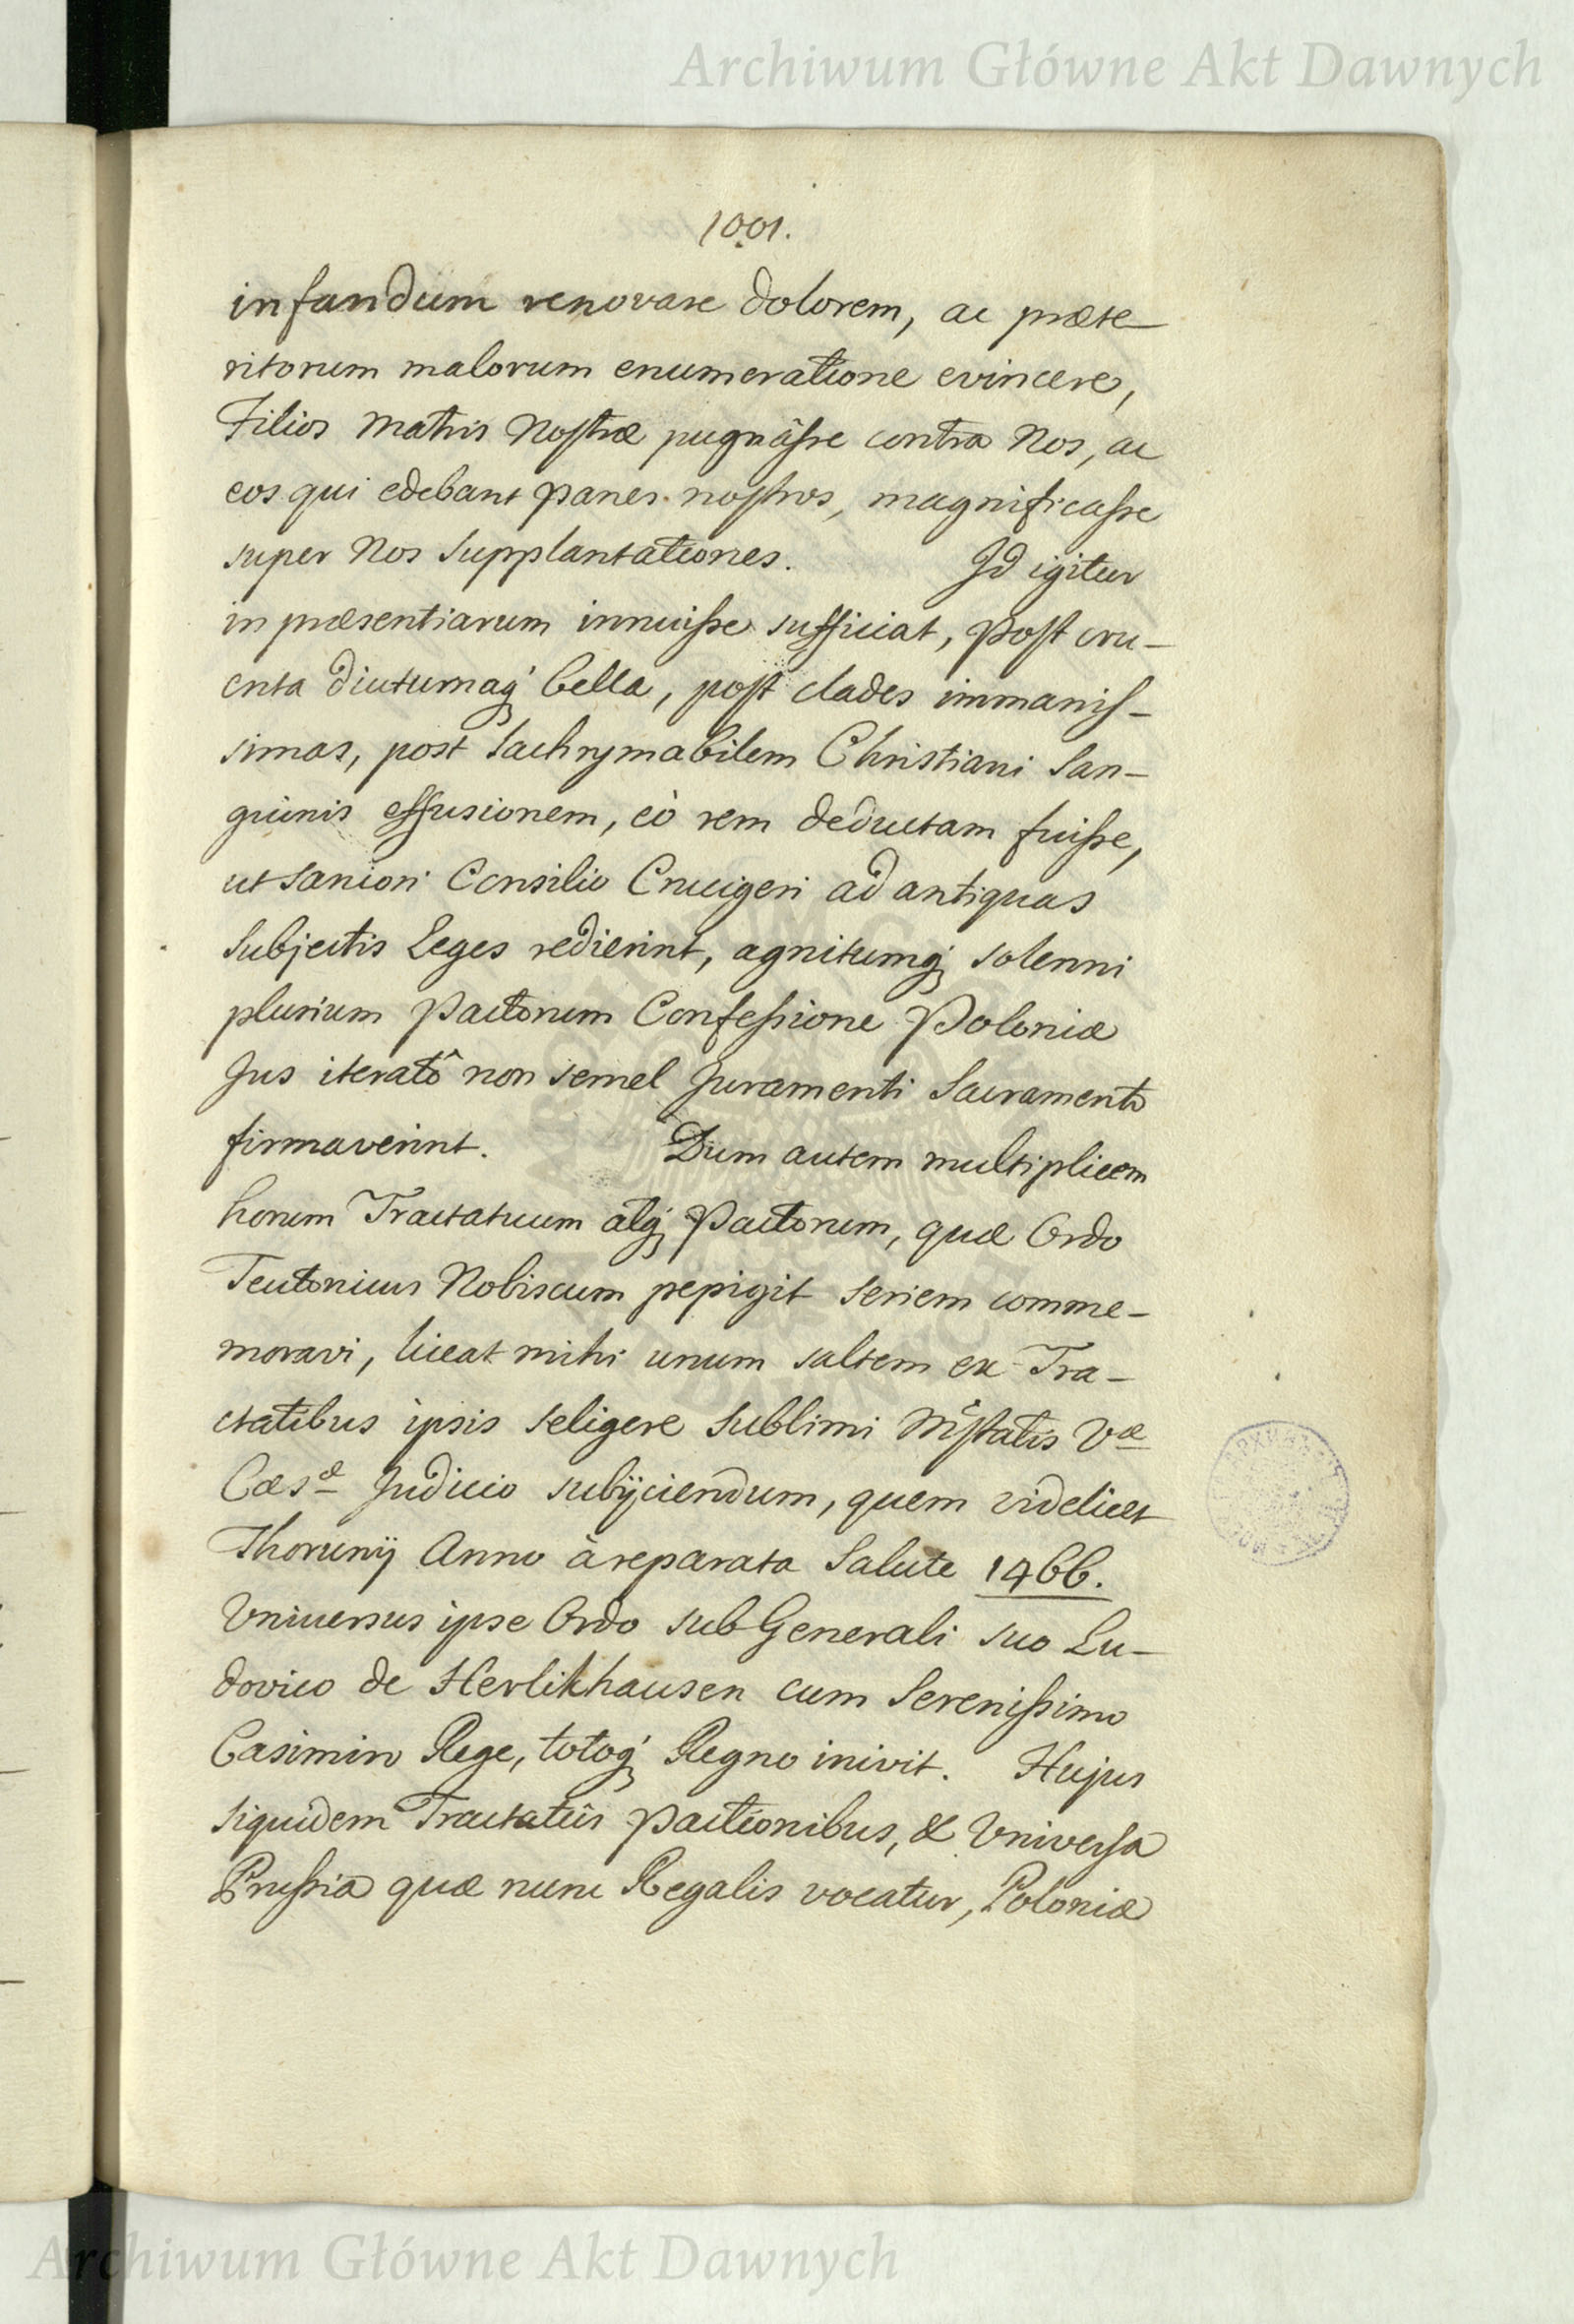 Archiwum Główne Akt Dawnych
1001.
infandum renovare dolorem, ac præte_
ritorum malorum enumeratione evincere,
Filios Matris Nostræ pugnâsse contra Nos, ac
eos qui edebant panes nostros, magnificasse
super Nos Supplantationes. Id igitur
in præsentiarum innuisse sufficiat, post cru_
enta diuturnaq́ bella, post clades immanis_
simas, post lachrymabilem Christiani San_
guinis effusionem, eò rem deductam fuisse,
ut saniori Consilio Crucigeri ad antiquas
Subjectis Leges redierint, agnitumq́ solenni
plurium Pactorum Confessione Poloniæ
Jus iteratô non semel Juramenti Sacramento
firmaverint. Dum autem multiplicem
horum Tractatuum atq́ Pactorum, quæ Ordo
Teutonicus Nobiscum pepigit seriem comme_
moravi, liceat mihi unum saltem ex Tra_
ctatibus ipsis seligere sublimi Mstatis Væ
Cæsæ Judicio subijciendum, quem videlicet
Thorunij Anno à reparata Salute 1466.
Universus ipse Ordo sub Generali suo Lu_
dovico de Herlikhausen cum Serenissimo
Casimiro Rege, totoq́ Regno inivit. Hujus
siquidem Tractatûs Pactionibus, & Universa
Prussia quæ nunc Regalis vocatur, Poloniæ
Archiwum Główne Akt Dawnych